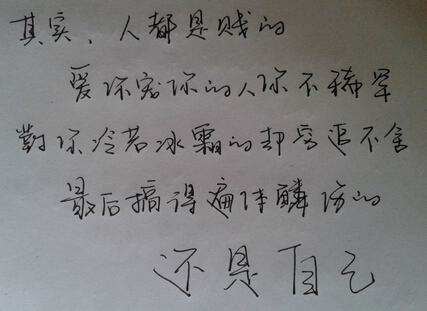 其实、人都是贱的
爱你宠你的人你不稀罕
對你冷若冰霜的却穷追不舍
最后搞得遍体鳞伤的
还是自己